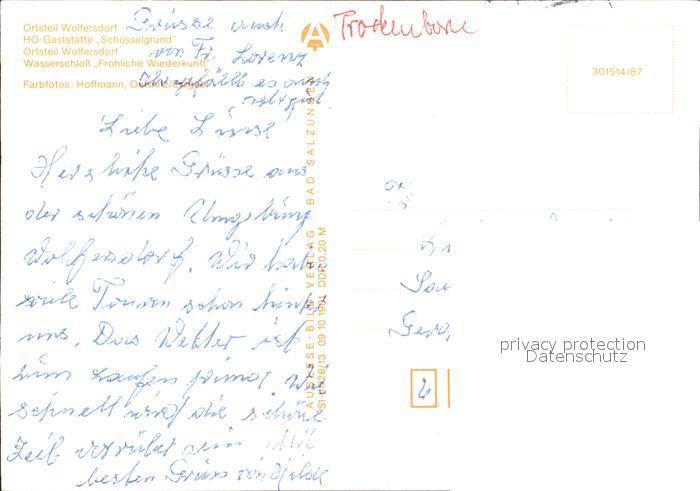 Ortsteil Wolfersdorf
HO-Gaststätte „Schüsselgrund"
Ortsteil Wolfersdorf
Wasserschloß „Fröhliche Wiederkunft"
Farbfotos: Hoffmann,
Grüsse auch
von Fr. Lorenz
Ihr gefällt es auch
sehr gut.
Trockenborn
301514/87
Liebe Luise
Herzliche Grüsse aus
der schönen Umgebung
Wolfersdorf. Wir haben
viele Touren schon hinter
uns. Das Wetter ist
zum Laufen prima. Wie
schnell wird die schöne
Zeit vorüber sein. Mit
besten Gruss von Hilde
AUSLESE-BILD-VERLAG BAD SALZUNGEN
09 10 1901 DDR 0,20 M
privacy protection
Datenschutz